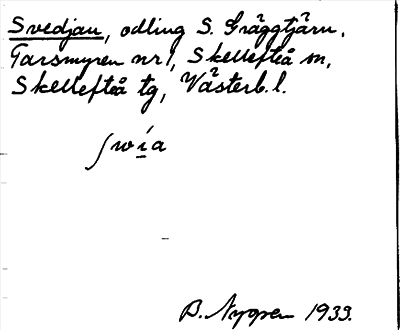 Svedjan, odling S. Gräggtjärn,
Tarsmyren nr 1, Skellefteå sn,
Skellefteå tg, Västerb. l.
ʃwi̱a
B. Nygren 1933.